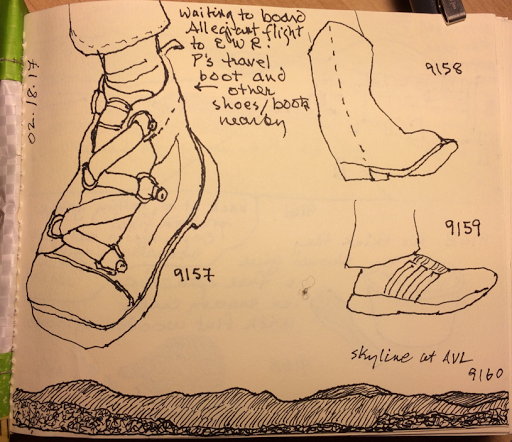 02.18.17
waiting to board
Allegiant flight
to EWR:
P's travel
boot and
other
shoes/boots
nearby
9158
9159
9157
skyline at AVL
9160